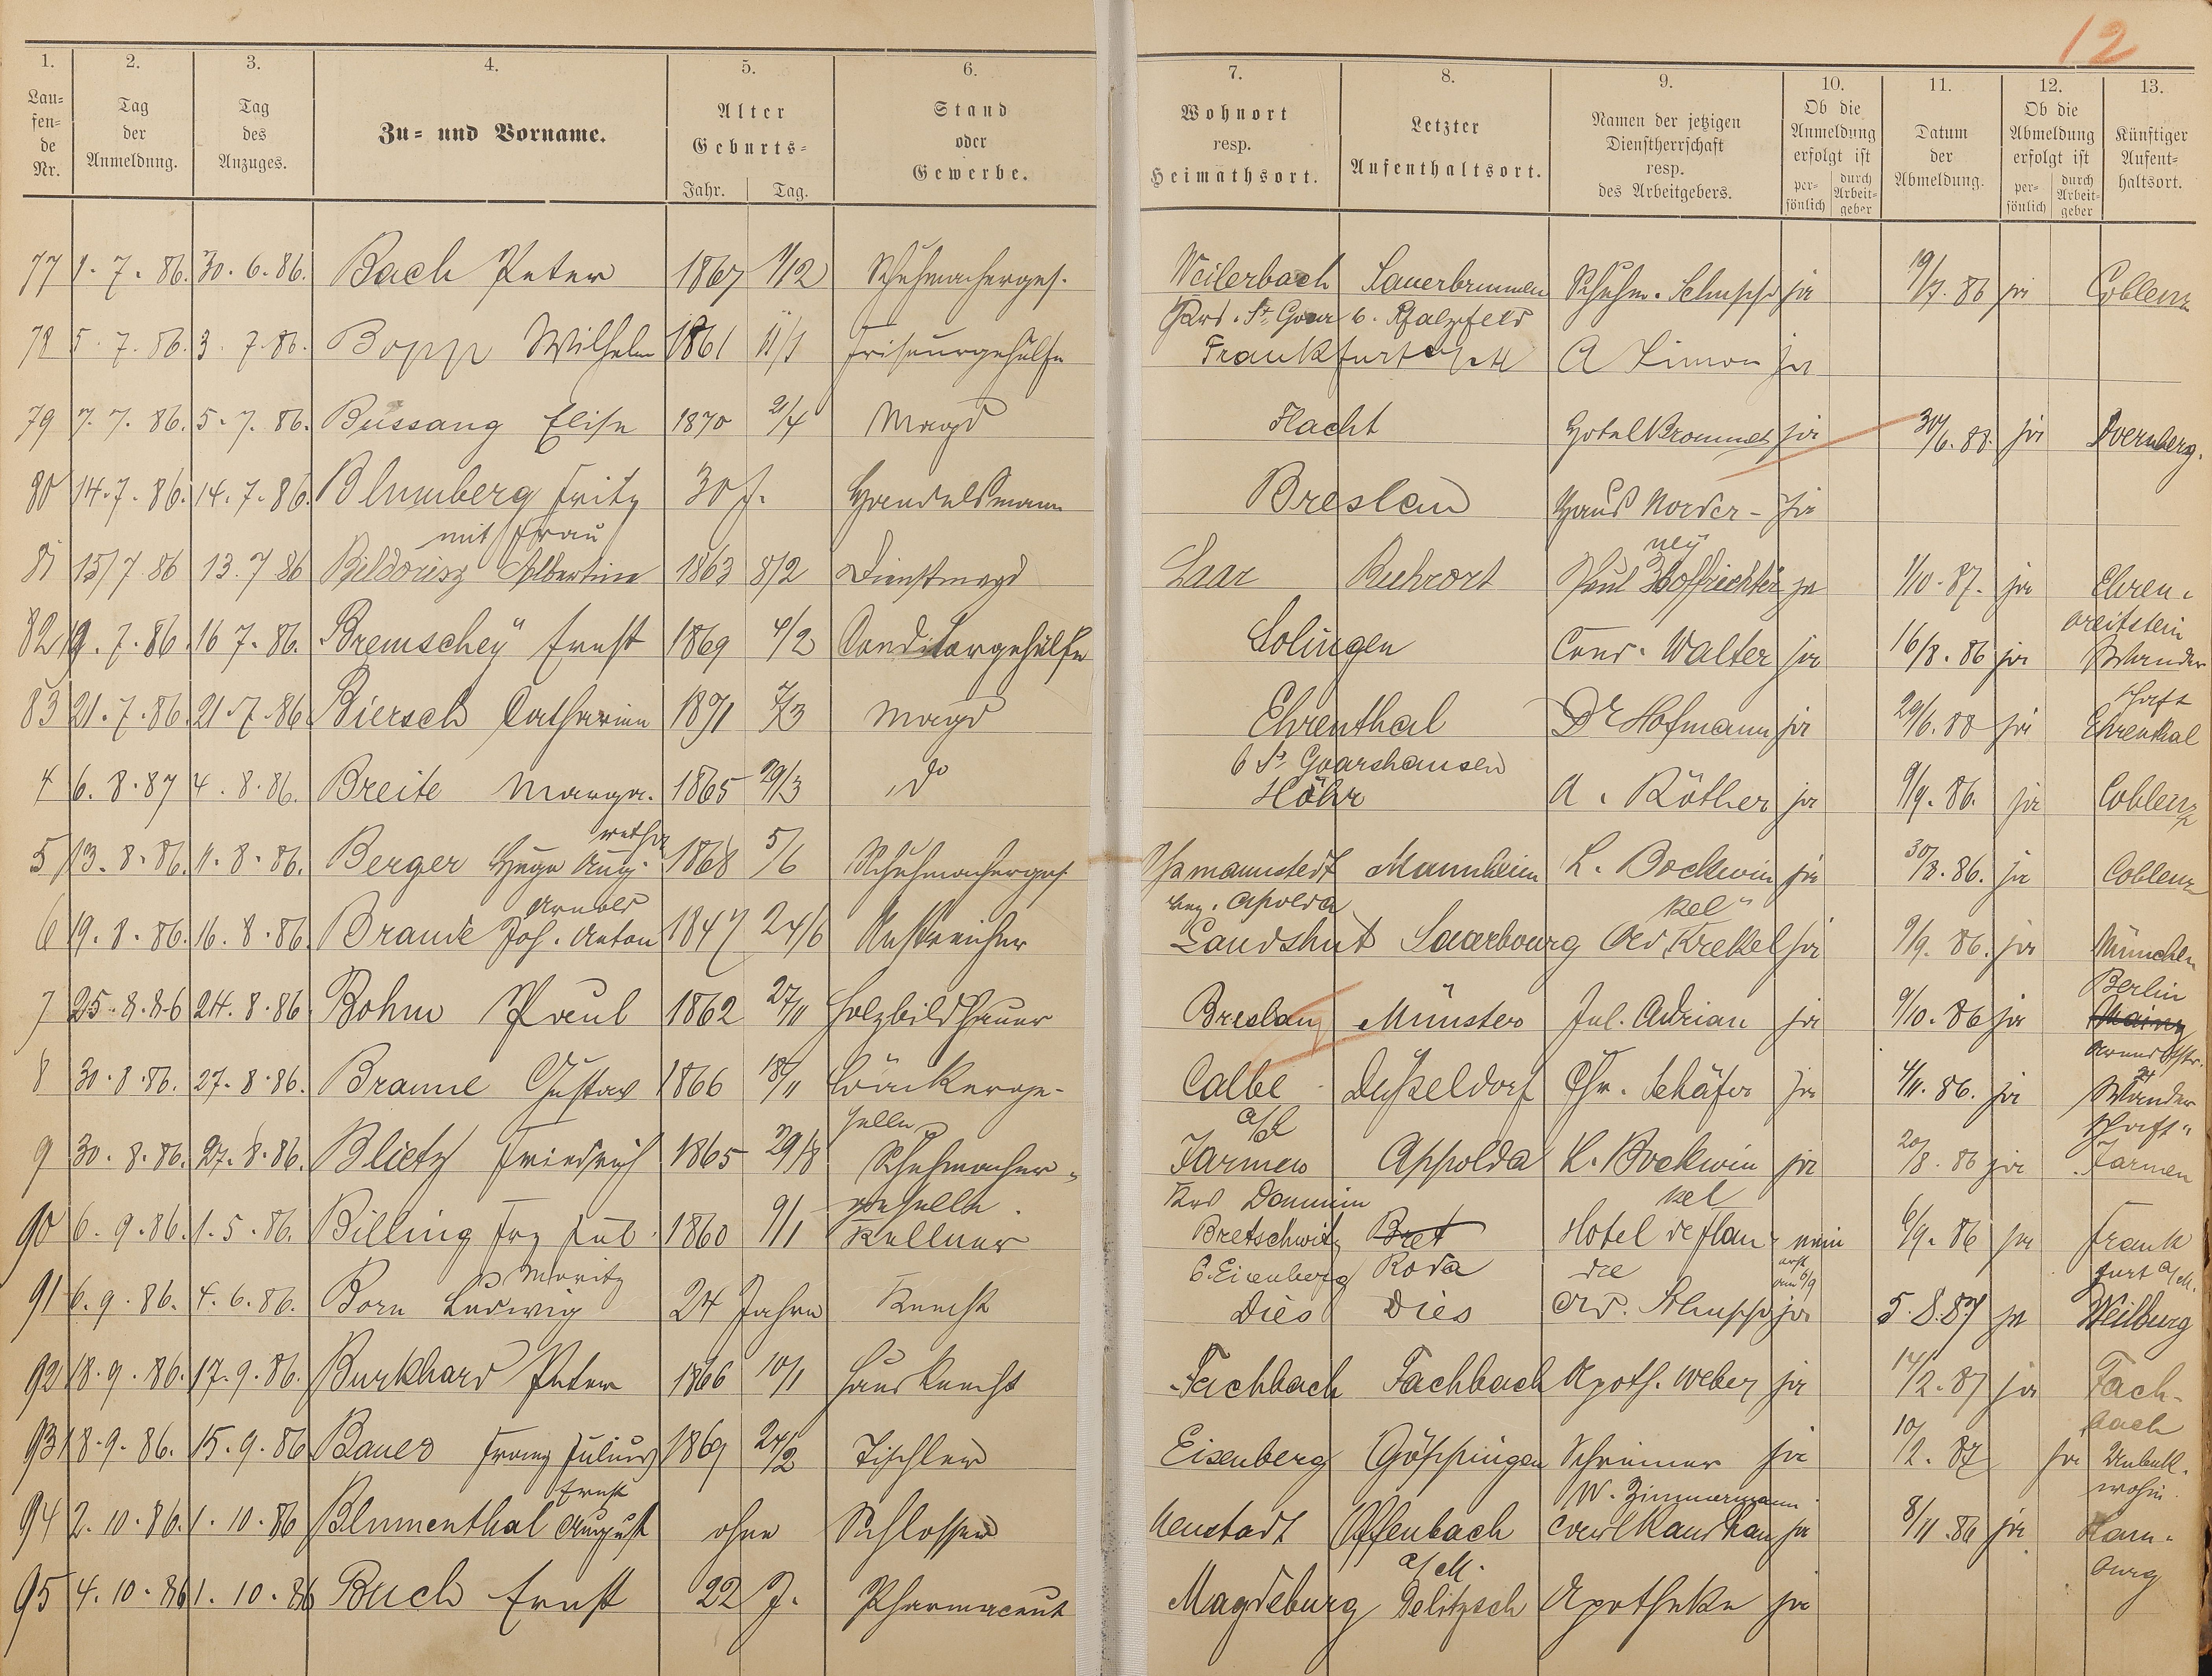 12
1. 2. 3. 4. 5. 6. 7. 8. 9. 10. 11. 12. 13.
Lau=fen=de Nr. Tag der Anmeldung. Tag des Anzuges. Zu= und Vorname. Alter Geburts= Jahr. Tag. Stand oder Gewerbe. Wohnort resp. Heimathsort. Letzter Aufenthaltsort. Namen der jetzigen Dienstherrschaft resp. des Arbeitgebers. Ob die Anmeldung erfolgt ist per=sönlich durch Arbeit=geber Datum der Abmeldung. Ob die Abmeldung erfolgt ist per=sönlich durch Arbeit=geber Künftiger Aufent=haltsort.
77 1. 7. 86. 30. 6. 86. Bach Peter 1867 1/12 Schuhmacherges. Weilerbach Sauerbrunnen Schuhm. ja 19/7. 86 ja Coblenz
St. Goar b. Pfalzfeld
78 5. 7. 86. 3. 7. 86. Bopp Wilhelm 1861 11/1 Friseurgehülfe Frankfurt a/M A Simon ja
79 7. 7. 86. 5. 7. 86. Bussang Elise 1870 21/4 Magd Flacht Hotel Bremmer ja 30/6. 88. ja
80 14. 7. 86. 14. 7. 86. Blumberg Fritz 30 J. Handelsmann Breslau Haus Norder- ja
mit Frau ney
81 15/7 86 13. 7 86 Albertine 1863 8/2 Dienstmagd Laar Ruhrort Paul Hoffrichter ja 1/10. 87. ja Ehren-
breitstein
82 19. 7. 86. 16 7. 86. Bremschey Ernst 1869 4/2 Conditorgehülfe Solingen Cond. Walter ja 16/8. 86 ja Wander
schaft
83 21. 7. 86. 21. 7. 86 Biersch Catharina 1871 7/3 Magd Ehrenthal Dr Hofmann ja 29/6. 88 ja Ehrenthal
b St. Goarshausen
4 6. 8. 87 4. 8. 86. Breite Marga- 1865 29/3 do Höhr A. Röther ja 9/9. 86. ja Coblenz
retha
5 13. 8. 86. 11. 8. 86. Berger Hugo Aug. 1868 5/6 Schuhmacherges Oßmannstedt Mannheim L. Bockwin ja 30/8. 86. ja Coblenz
Arnold Apolda kel
6 19. 8. 86. 16. 8. 86 Braude Joh. Anton 1847 24/6 Anstreicher Landshut Saarbourg Ad. Krekel ja 9/9. 86. ja München
7 25. 8. 86 24. 8. 86 Bohm Paul 1862 27/11 Holzbildhauer Breslau Münster Jul. Adrian ja 9/10. 86 ja Berlin
Mainz
8 30. 8. 86. 27. 8. 86. Braune Gustav 1866 18/11 Bäckerge- Calbe Dußeldorf Chr. Schäfer ja 4/11. 86. ja Wander
selle a/S schaft
9 30. 8. 86. 27. 8. 86. Blietz Friedrich 1865 29/8 Schuhmacher- Jarmen Appolda L. Bockwin ja 20/8. 86 ja Jarmen
geselle. Krs Demmin kel
90 6. 9. 86. 1. 5. 86. Billing Frz Jul. 1860 9/1 Kellner Bretschwitz Bret Hotel de Flan- nein 6/9. 86 ja Frank
Moritz b. Eisenberg Roda dre furt a/M.
91 6. 9. 86. 4. 6. 86. Born Ludwig 24 Jahre Knecht Diès Diès ja 5. 8. 87 ja Weilburg
92 18. 9. 86. 17. 9. 86. Burkhard Peter 1866 10/1 Hausknecht Fachbach Fachbach Apoth. Weber ja 14/2. 87 ja Fach-
bach
93 18. 9. 86. 15. 9. 86 Bauer Franz Julius 1869 24/2 Tischler Eisenberg Göppingen Schreiner ja 10/2. 87 ja Unbek.
Ernst W. Zimmermann wohin
94 2. 10. 86. 1. 10. 86 Blumenthal August ohne Schlosser Neustadt Offenbach ja 8/11. 86 ja Ham-
a/M. burg
95 4. 10. 86 1. 10. 86 Buch Ernst 22 J. Pharmaceut Magdeburg Delitzsch Apotheke ja